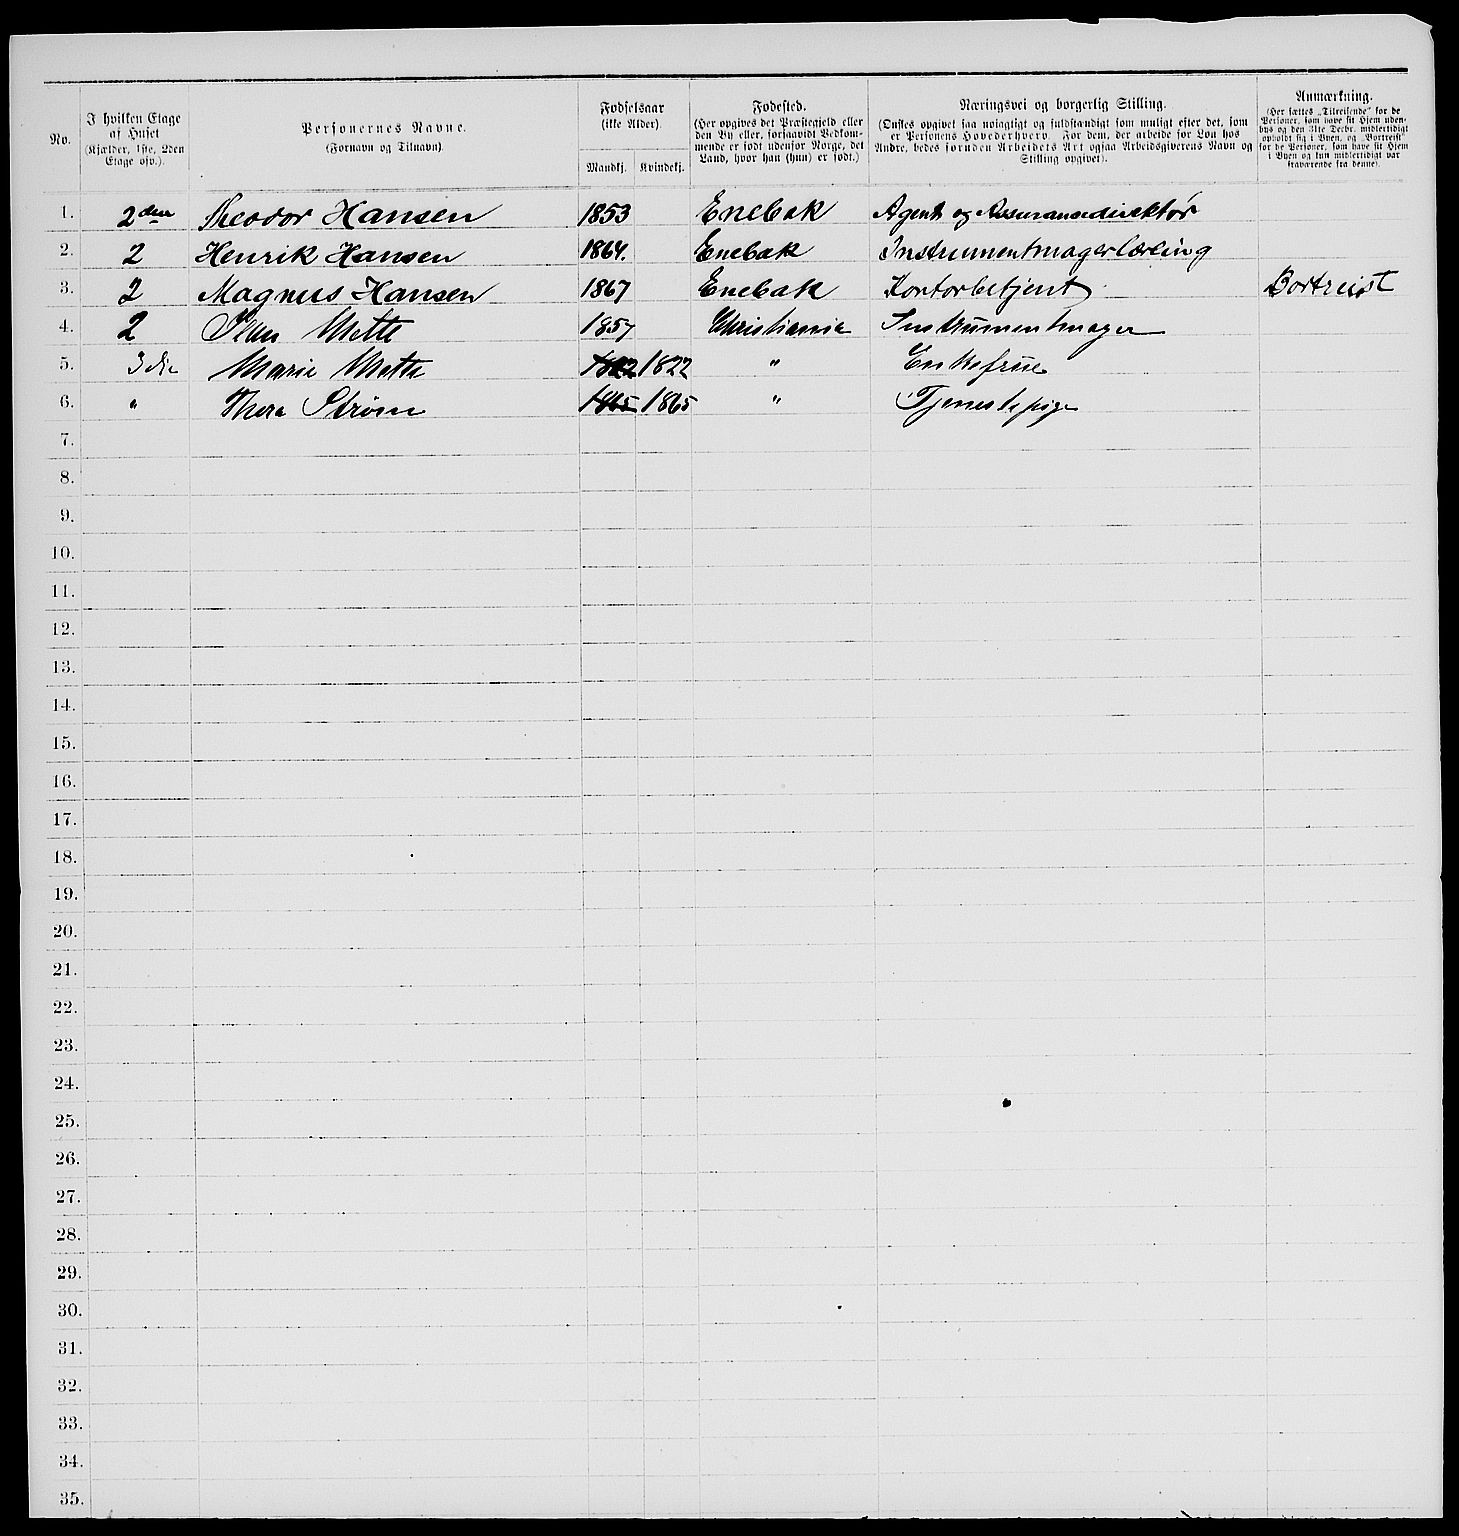 No.
I hvilken Etage af Huset (Kjælder, 1ste, 2den Etage osv.).
Personernes Navne. (Fornavn og Tilnavn).
Fødselsaar (ikke Alder).
Mandkj. Kvindekj.
Fødested. (Her opgives det Præstegjeld eller den By eller, forsaavidt Vedkommende er født udenfor Norge, det Land, hvor han (hun) er født.)
Næringsvei og borgerlig Stilling. (Ønskes opgivet saa nøiagtigt og fuldstændigt som muligt efter det, som er Personens Hovederhverv. For dem, der arbeide for Løn hos Andre, bedes foruden Arbeidets Art ogsaa Arbeidsgiverens Navn og Stilling opgivet).
Anmærkning. (Her sættes „Tilreisende" for de Personer, som have sit Hjem udenbys og den 31te Decbr. midlertidigt opholdt sig i Byen, og „Bortreist" for de Personer, som have sit Hjem i Byen og kun midlertidigt var fraværende fra denne).
1. 2den Theodor Hansen 1853 Enebak Agent og Assuransedirektør
2. 2 Henrik Hansen 1864. Enebak Instrumentmagerlærling
3. 2 Magnus Hansen 1867 Enebak Kontorbetjent Bortreist
4. 2 Mette 1857 Christiania Instrumentmager
5. 3die Marie Mette 1822 1822 " Enkefrue
6. " Thora Strøm 1865 1865 " Tjenestepige
7.
8.
9.
10.
11.
12.
13.
14.
15.
16.
17.
18.
19.
20.
21.
22.
23.
24.
25.
26.
27.
28.
29.
30.
31.
32.
33.
34.
35.